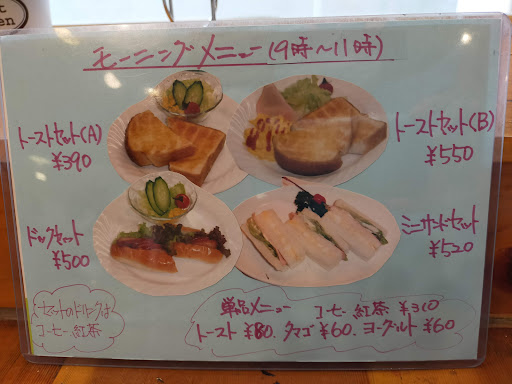 モーニングメニュー(9時〜11時)
トーストセット(A)
¥390
トーストセット(B)
¥550
ドックセット
¥500
ミニサンドセット
¥520
セットのドリンクは
コーヒー 紅茶
単品メニュー コーヒー 紅茶 ¥310
トースト ¥180. タマゴ ¥60. ヨーグルト ¥60